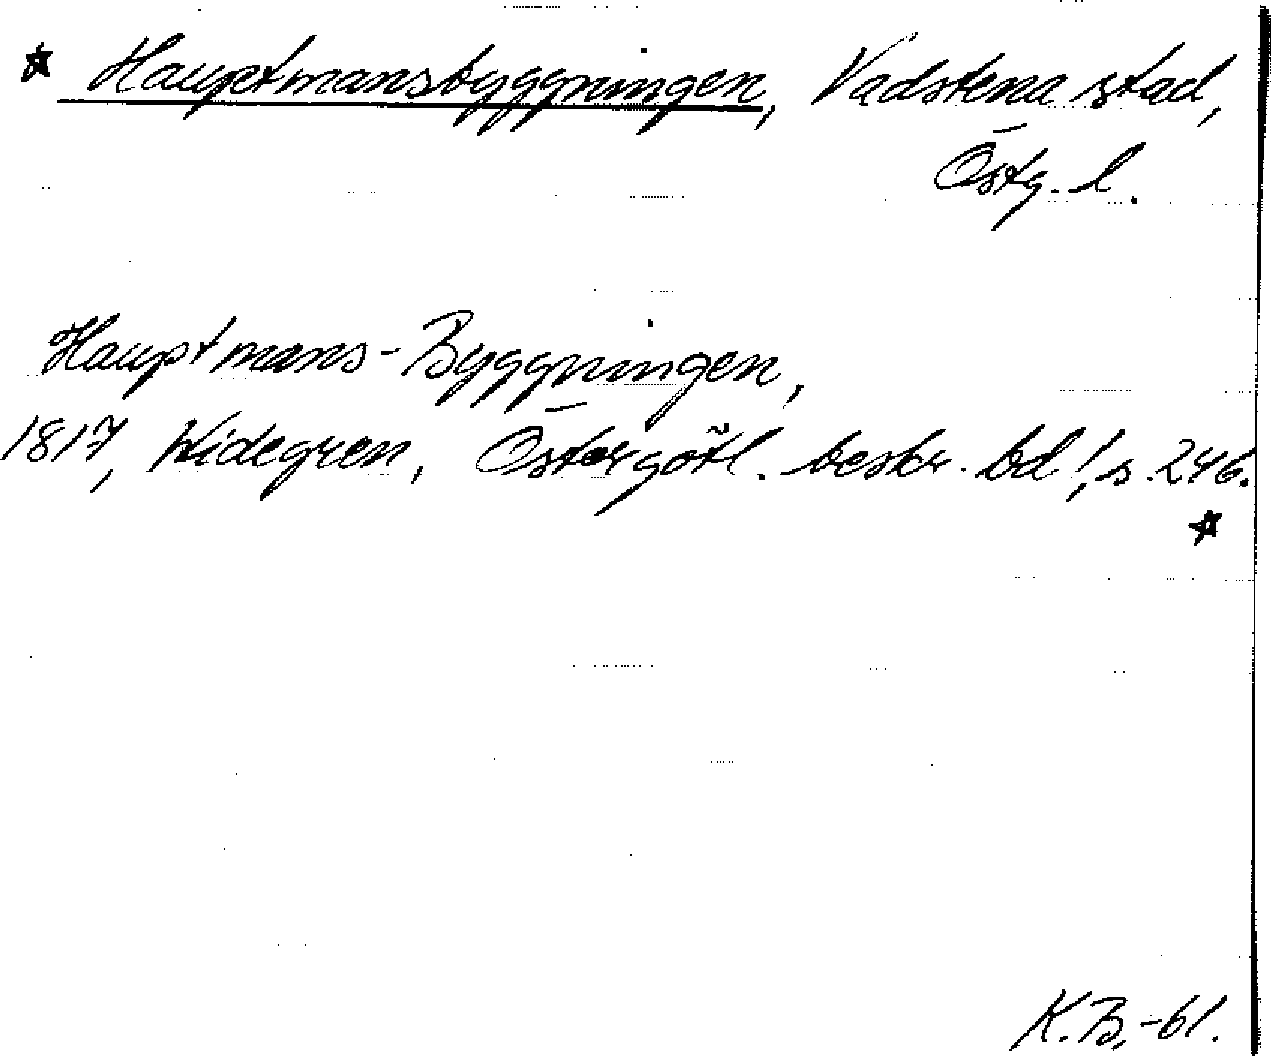 * Hauptmansbyggningen, Vadstena stad,
Östg. l.
Hauptmans-Byggningen,
1817, Widegren, Östergötl. beskr. bd 1, s. 246.
*
K.B.-61.